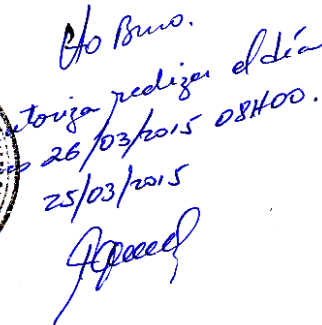 Vto Bueno.
utoriza realizar el día
26/03/2015 08H00.
25/03/2015